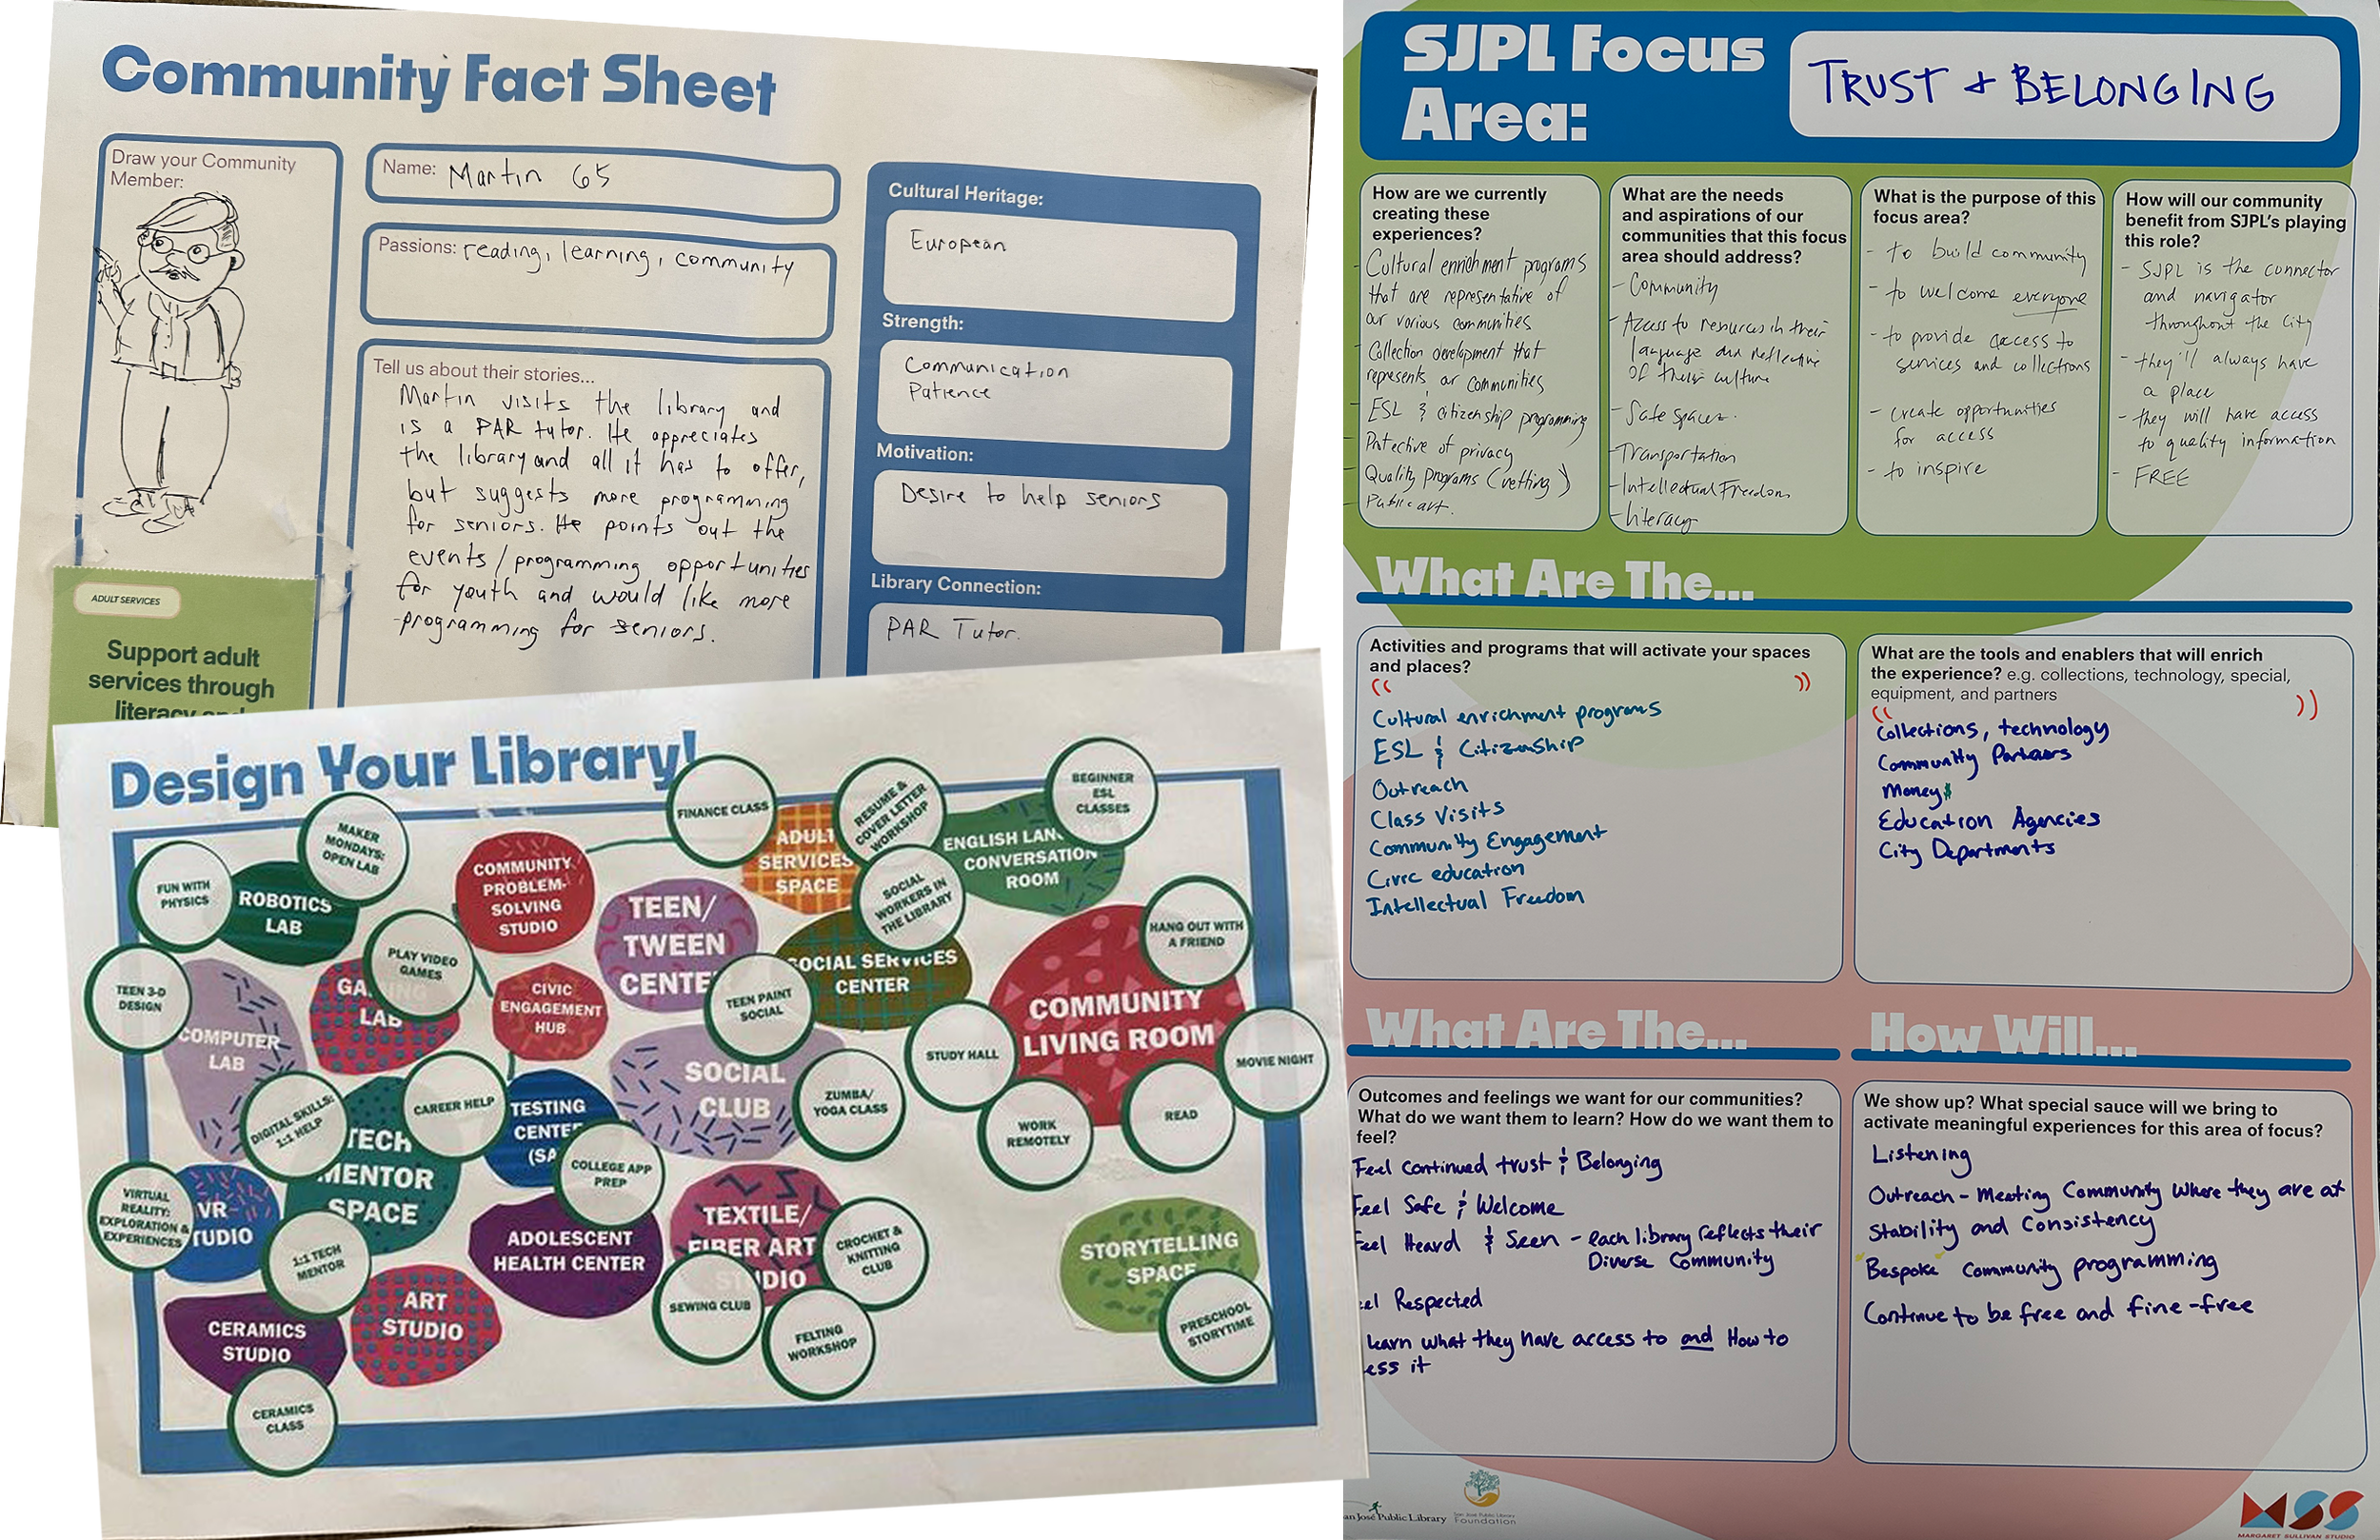 Community Fact Sheet
Draw your Community
Member:
Name: Martin 65
Passions: reading, learning, community
Tell us about their stories...
Martin visits the library and
is a PAR tutor. He appreciates
the library and all it has to offer,
but suggests more programming
for seniors. He points out the
events/programming opportunities
for youth and would like more
programming for seniors.
Cultural Heritage:
European
Strength:
Communication
Patience
Motivation:
Desire to help seniors
Library Connection:
PAR Tutor.
ADULT SERVICES
Support adult
services through
literacy and
Design Your Library!
FINANCE CLASS
ADULT
SERVICES
SPACE
RESUME &
COVER LETTER
WORKSHOP
ENGLISH LAN
CONVERSATION
ROOM
BEGINNER
ESL
CLASSES
MAKER
MONDAYS:
OPEN LAB
FUN WITH
PHYSICS
ROBOTICS
LAB
COMMUNITY
PROBLEM-
SOLVING
STUDIO
TEEN/
TWEEN
CENTE
SOCIAL
WORKERS IN
THE LIBRARY
SOCIAL SERVICES
CENTER
HANG OUT WITH
A FRIEND
COMMUNITY
LIVING ROOM
PLAY VIDEO
GAMES
GAMING
LAB
TEEN 3-D
DESIGN
COMPUTER
LAB
CIVIC
ENGAGEMENT
HUB
TEEN PAINT
SOCIAL
SOCIAL
CLUB
STUDY HALL
MOVIE NIGHT
ZUMBA/
YOGA CLASS
WORK
REMOTELY
READ
DIGITAL SKILLS:
1:1 HELP
CAREER HELP
TECH
MENTOR
SPACE
TESTING
CENTE
(SA
COLLEGE APP
PREP
VIRTUAL
REALITY:
EXPLORATION &
EXPERIENCES
VR
TUDIO
1:1 TECH
MENTOR
ADOLESCENT
HEALTH CENTER
TEXTILE/
FIBER ART
STUDIO
CROCHET &
KNITTING
CLUB
SEWING CLUB
FELTING
WORKSHOP
STORYTELLING
SPACE
PRESCHOOL
STORYTIME
ART
STUDIO
CERAMICS
STUDIO
CERAMICS
CLASS
SJPL Focus
Area:
TRUST + BELONGING
How are we currently
creating these
experiences?
- Cultural enrichment programs
that are representative of
our various communities
- Collection development that
represents our communities
- ESL & citizenship programming
- Protective of privacy
- Quality programs (vetting)
- Public art.
What are the needs
and aspirations of our
communities that this focus
area should address?
- Community
- Access to resources in their
language and reflective
of their culture
- Safe spaces.
- Transportation
- Intellectual Freedom
- Literacy
What is the purpose of this
focus area?
- to build community
- to welcome everyone
- to provide access to
services and collections
- create opportunities
for access
- to inspire
How will our community
benefit from SJPL's playing
this role?
- SJPL is the connector
and navigator
throughout the city
- they'll always have
a place
- they will have access
to quality information
- FREE
What Are The...
Activities and programs that will activate your spaces
and places?
Cultural enrichment programs
ESL & Citizenship
Outreach
Class Visits
Community Engagement
Civic education
Intellectual Freedom
What are the tools and enablers that will enrich
the experience? e.g. collections, technology, special,
equipment, and partners
Collections, technology
Community Partners
Money$
Education Agencies
City Departments
What Are The...
Outcomes and feelings we want for our communities?
What do we want them to learn? How do we want them to
feel?
Feel continued trust & Belonging
Feel Safe & Welcome
Feel Heard & Seen - each library reflects their
Diverse Community
eel Respected
Learn what they have access to and How to
ess it
How Will...
We show up? What special sauce will we bring to
activate meaningful experiences for this area of focus?
Listening
Outreach - Meeting Community where they are at
Stability and Consistency
Bespoke Community programming
Continue to be free and fine-free
an José Public Library
San José Public Library
Foundation
MSS
MARGARET SULLIVAN STUDIO